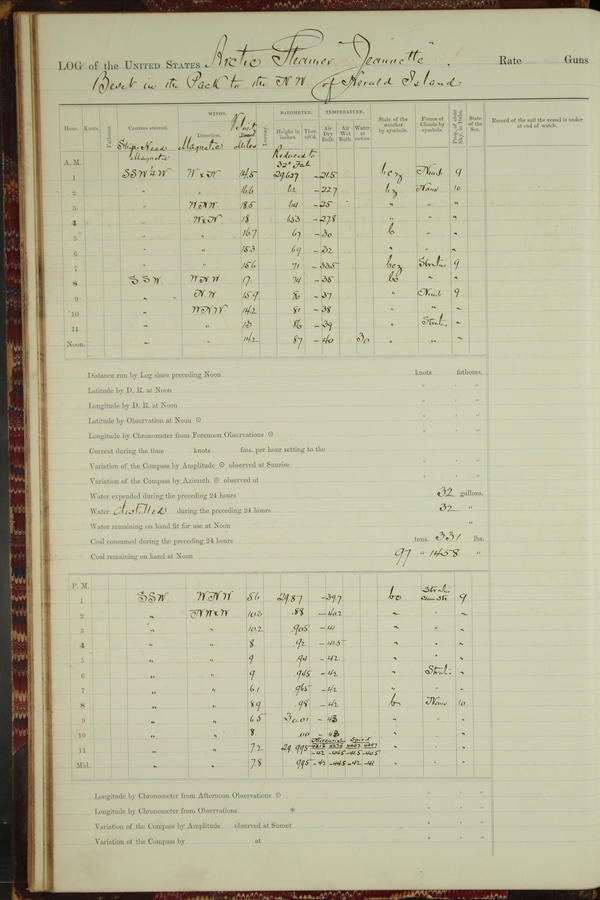 LOG of the UNITED STATES Arctic Steamer "Jeannette". Rate Guns
Beset in the Pack to the N.W. of Herald Island
Hour. Knots. Fathoms. Courses steered. WINDS. Direction. Velocity Miles Leeway. BAROMETER. Height in inches. Ther. att'd. TEMPERATURE. Air Dry Bulb. Air Wet Bulb. Water at surface. State of the weather by symbols. Forms of Clouds by symbols. Prop. of clear Sky, in 10ths. State of the Sea. Record of the sail the vessel is under at end of watch.
Ship's Head Magnetic Magnetic Reduced to 32° Fah
A. M.
1 SSW¼W WxN 14.5 29.627 -21.5 bcz Nimb 9
2 " " 16.6 62 -22.7 bz None 10
3 " WNW 18.5 64 -25 " " "
4 " WxN 18 653 -27.8 " " "
5 " " 16.7 67 -30 b " "
6 " " 15.3 69 -32 " " "
7 " " 15.6 71 -33.5 bcz Stratus 9
8 SSW WNW 17 74 -35 " "
9 " NW 15.9 80 -37 " Nimb 9
10 " WNW 14.2 81 -38 " " "
11 " " 86 -39 " Strat. "
Noon. " " 14.2 87 -40 30 " " "
Distance run by Log since preceding Noon knots fathoms.
Latitude by D. R. at Noon " " "
Longitude by D. R. at Noon " " "
Latitude by Observation at Noon ☉ " " "
Longitude by Chronometer from Forenoon Observations ☉ " " "
Current during the time knots fms. per hour setting to the
Variation of the Compass by Amplitude ☉ observed at Sunrise " " "
Variation of the Compass by Azimuth ☉ observed at " " "
Water expended during the preceding 24 hours 32 gallons.
Water distilled during the preceding 24 hours 32 "
Water remaining on hand fit for use at Noon "
Coal consumed during the preceding 24 hours tons. 331 lbs.
Coal remaining on hand at Noon 97 " 1458 "
P. M.
1 SSW WNW 5.6 29.87 -39.7 bc Stratus 9
2 " NWxW 10.3 .88 -40.2 " " "
3 " " 10.2 .905 -41 " " "
4 " " 8 .92 -41.5 " " "
5 " " 9 .94 -42 " " "
6 " " 9 .945 -42 " Stratus "
7 " " 6.1 .965 -42 " " "
8 " " 8.9 .98 -42 b None 10
9 " " 6.5 30.01 -43 " " "
10 " " 8 .00 -43 " " "
Mercurial Spirit
11 " " 7.2 29.995 -42 -44.5 -41.5 -40.5 " " "
Mid. " " 7.8 995 -42 -44.5 -42 -41 " " "
Longitude by Chronometer from Afternoon Observations ☉ " " "
Longitude by Chronometer from Observations * " " "
Variation of the Compass by Amplitude observed at Sunset " " "
Variation of the Compass by at " " "